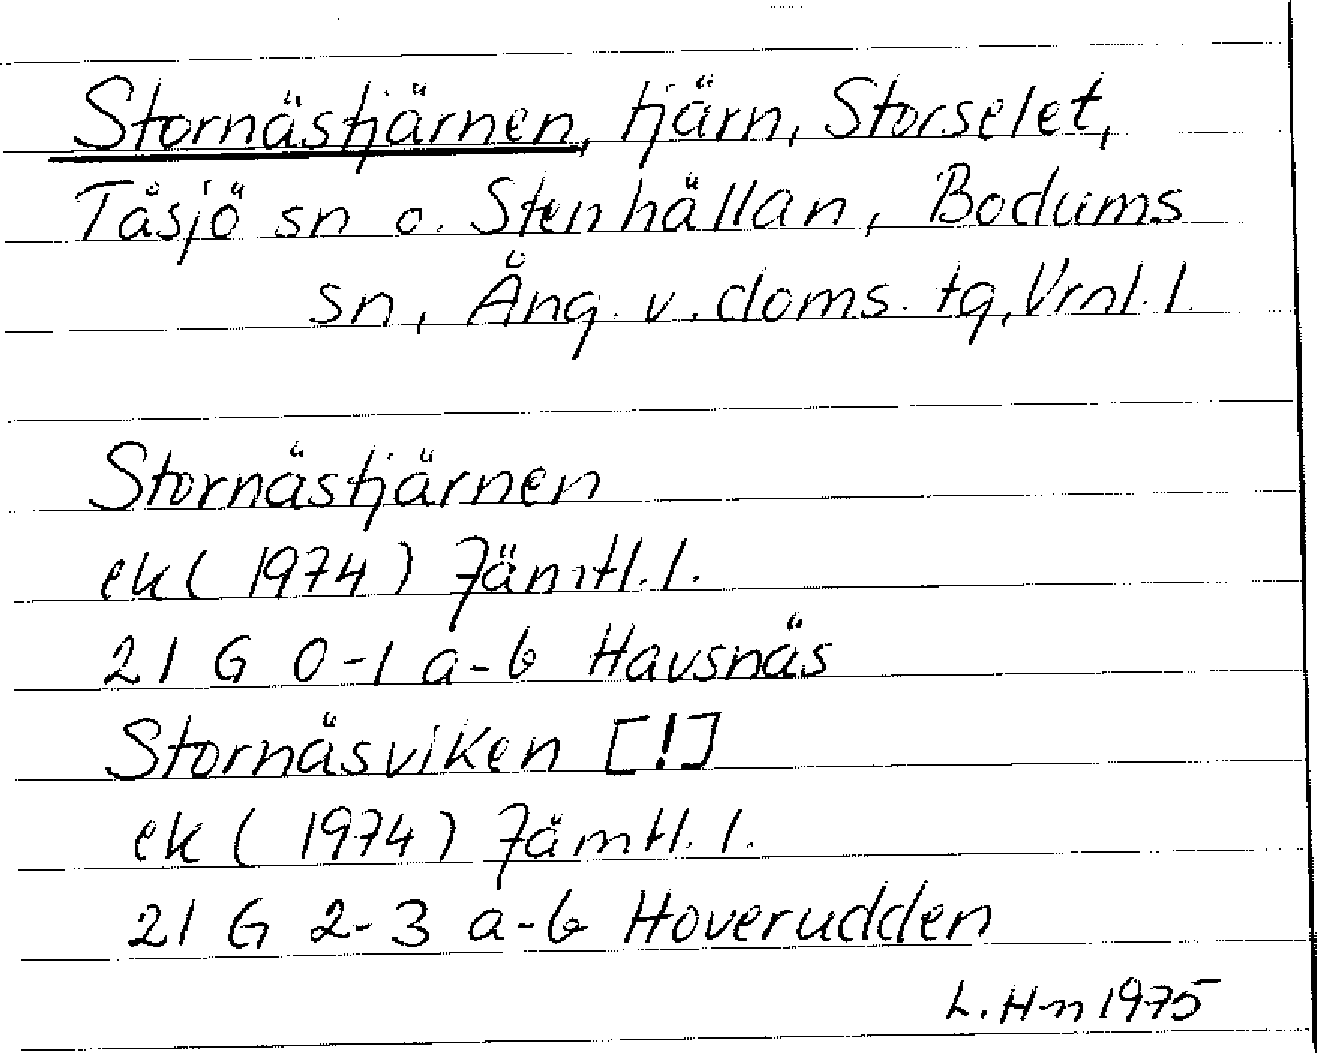 Stornästjärnen, tjärn, Storselet,
Tåsjö sn o. Stenhällan, Bodums
sn, Ång. v. doms. tg, Vrnl. l.
Stornästjärnen
ek ( 1974 ) Jämtl. l.
21 G 0-1 a-b Havsnäs
Stornäsviken [!]
ek ( 1974 ) Jämtl. l.
21 G 2-3 a-b Hoverudden
L. H-n 1975